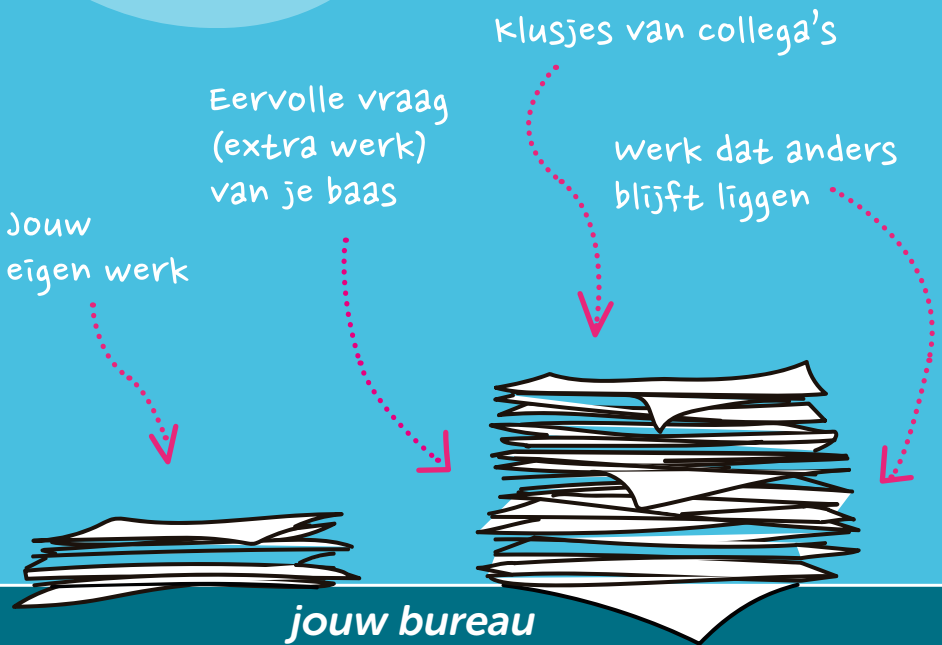 Jouw
eigen werk
Eervolle vraag
(extra werk)
van je baas
Klusjes van collega's
Werk dat anders
blijft liggen
jouw bureau